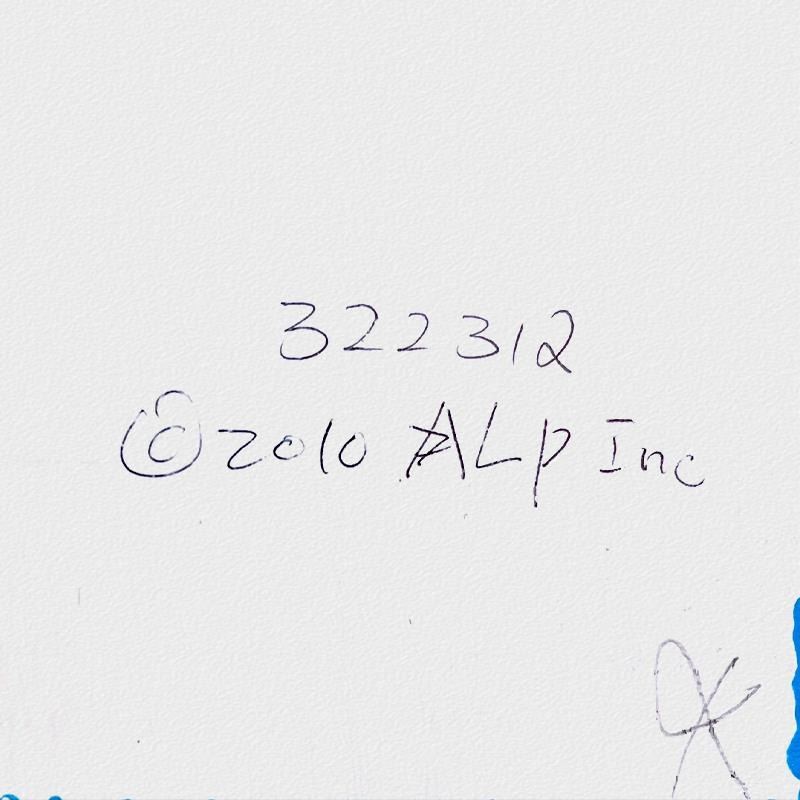 322312
©2010 ALP Inc